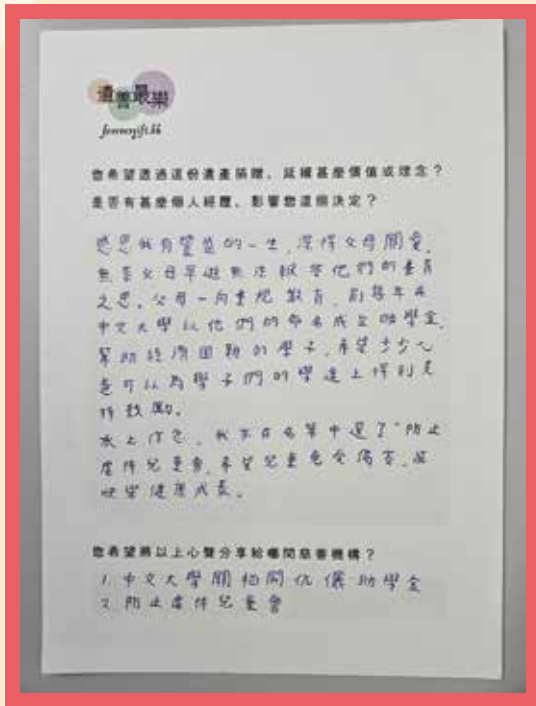 遺善最樂
forevergift.hk
您希望透過這份遺產捐贈，延續甚麼價值或理念？
是否有甚麼個人經歷，影響您這個決定？
感恩我有豐盛的一生，深得父母關愛，
無奈父母早逝無法報答他們的養育
之恩。父母一向重視教育，前幾年在
中文大學以他們的命名成立助學金，
幫助經濟困難的學子，希望少少心
意可以為學子們的學途上得到支
持鼓勵。
承上信念，我亦在名單中選了"防止
虐待兒童會，希望兒童免受傷害，
快樂健康成長。
您希望將以上心聲分享給哪間慈善機構？
1. 中文大學關柏開伉儷助學金
2. 防止虐待兒童會